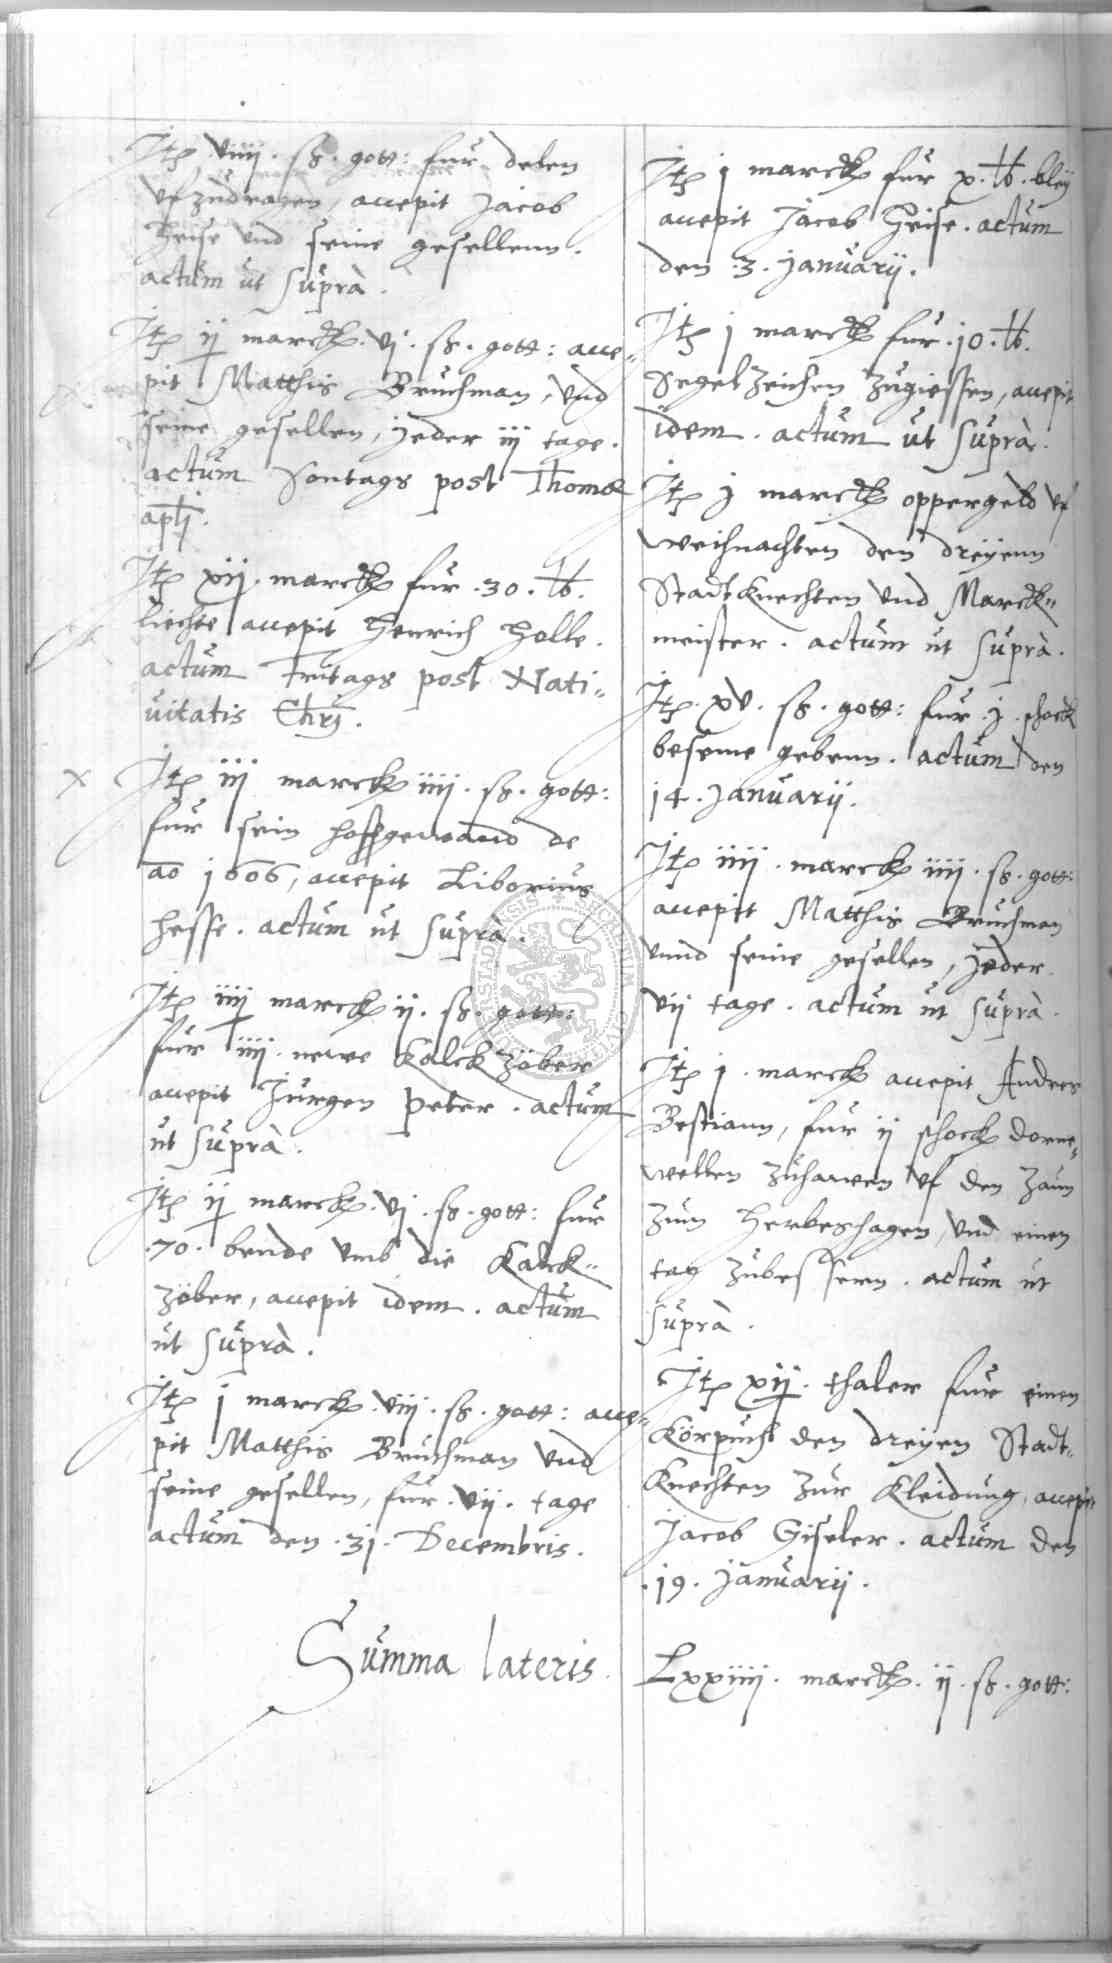 Itz viiij. ß. gott: fur delen
vfzudragen, accepit Jacob
Heise vnd seine gesellenn.
actum ut suprà.
Itz ij marck. vj. ß. gott: acce„
pit Matthis Bruchman, vnd
seine gesellen, jeder iij tage.
actum Sontags post Thomæ
aptj.
Itz xij. marck fur .30. ℔.
liechte accepit Henrich Holle.
actum Fritags post Nati„
uitatis Chrj.
Itz iij marck iiij. ß. gott:
fur sein hoffgewand de
ao 1606, accepit Liborius
Hesse. actum ut suprà.
Itz iiij marck ij. ß. gott:
fur iiij. newe Kalck zöber
accepit Jurgen Peter. actum
ut suprà.
Itz ij marck. vj. ß. gott: fur
.70. bende vmb die Kalck„
zöber, accepit idem. actum
ut suprà.
Itz j marck. viij. ß. gott: acce„
pit Matthis Bruchman vnd
seine gesellen, fur. vij. tage
actum den .31. Decembris.
Summa lateris
Itz j marck fur x. ℔. bley
accepit Jacob Heise. actum
den .3. Januarij.
Itz j marck fur .10. ℔.
Segelzeichen zugiessen, accepit
idem. actum ut suprà.
Itz j marck oppergeld vf
Weihnachten den dreyenn
Stadtknechten vnd Marck„
meister. actum ut suprà.
Itz. xv. ß. gott: fur .j. schock
beseme gebenn. actum den
14. Januarij.
Itz iiij. marck iiij. ß. gott:
accepit Matthis Bruchman
vnnd seine gesellen, jeder
vij tage. actum ut suprà.
Itz j. marck accepit Andres
Bestiann, fur ij schock dorne„
wellen zuhawen vf den Zaun
zum Herbeshagen, vnd einen
tag zubessern. actum ut
suprà.
Itz xij. thaler fur einen
Körpucht den dreyen Stadt„
Knechten zur Kleidung, accepit
Jacob Giseler. actum den
.19. Januarij.
Lxxiiij. marck. ij. ß. gott: